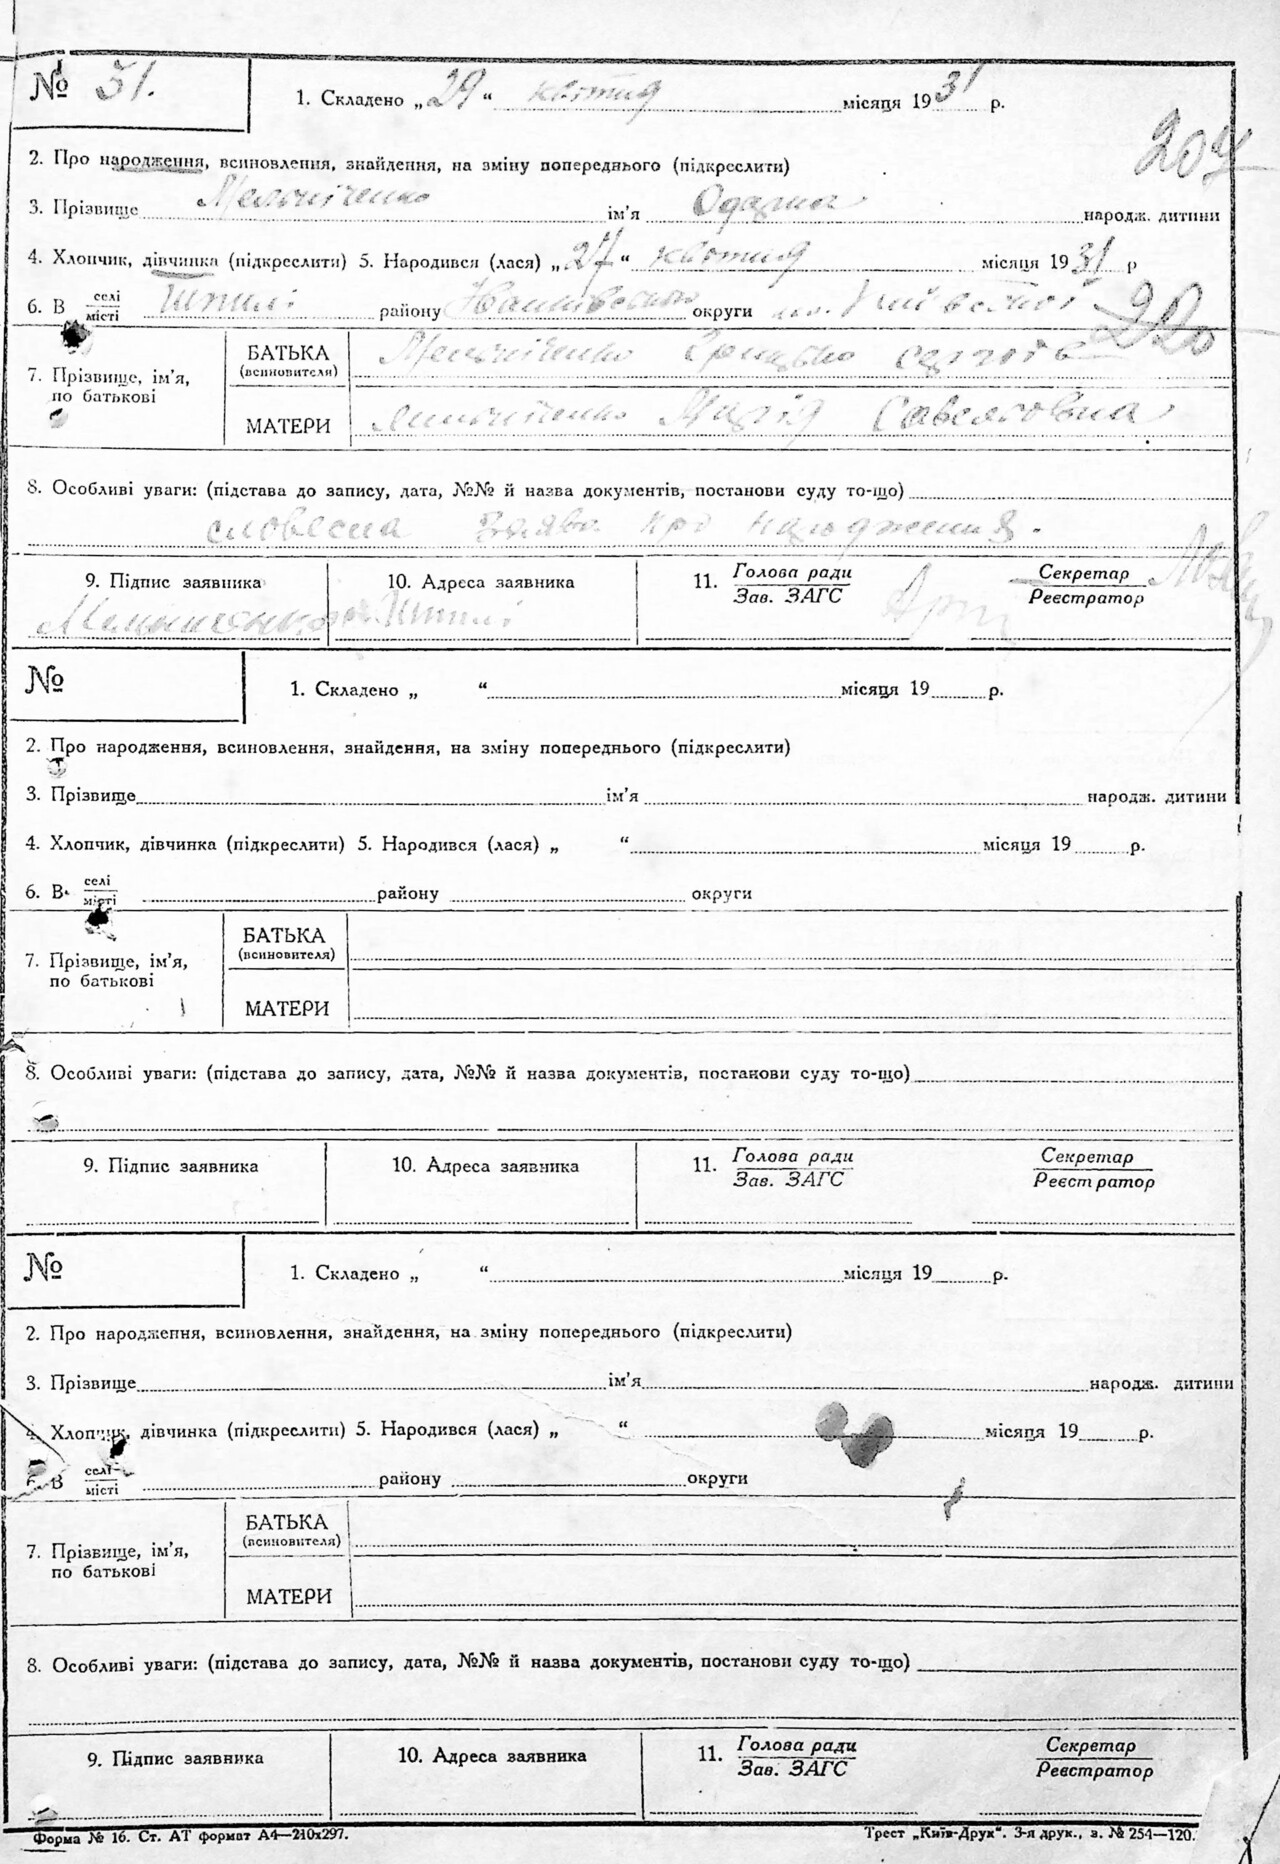 № 51. 1. Складено „29“ квітня місяця 1931 р.
207
2. Про народження, всиновлення, знайдення, на зміну попереднього (підкреслити)
3. Прізвище Мельніченко ім'я Одарка народж. дитини
4. Хлопчик, дівчинка (підкреслити) 5. Народився (лася) „27“ квітня місяця 1931 р
6. В селі/місті Шпилі району округи Київської
220
7. Прізвище, ім'я, по батькові
БАТЬКА (всиновителя) Мельніченко Грицько
МАТЕРИ Мельніченко Марія Савеловна
8. Особливі уваги: (підстава до запису, дата, №№ й назва документів, постанови суду то-що)
словесна заява про народження.
9. Підпис заявника 10. Адреса заявника 11. Голова ради/Зав. ЗАГС Секретар/Реєстратор
Мельниченко Шпилі
№ 1. Складено „ “ місяця 19 р.
2. Про народження, всиновлення, знайдення, на зміну попереднього (підкреслити)
3. Прізвище ім'я народж. дитини
4. Хлопчик, дівчинка (підкреслити) 5. Народився (лася) „ “ місяця 19 р.
6. В селі/місті району округи
7. Прізвище, ім'я, по батькові
БАТЬКА (всиновителя)
МАТЕРИ
8. Особливі уваги: (підстава до запису, дата, №№ й назва документів, постанови суду то-що)
9. Підпис заявника 10. Адреса заявника 11. Голова ради/Зав. ЗАГС Секретар/Реєстратор
№ 1. Складено „ “ місяця 19 р.
2. Про народження, всиновлення, знайдення, на зміну попереднього (підкреслити)
3. Прізвище ім'я народж. дитини
4. Хлопчик, дівчинка (підкреслити) 5. Народився (лася) „ “ місяця 19 р.
6. В селі/місті району округи
7. Прізвище, ім'я, по батькові
БАТЬКА (всиновителя)
МАТЕРИ
8. Особливі уваги: (підстава до запису, дата, №№ й назва документів, постанови суду то-що)
9. Підпис заявника 10. Адреса заявника 11. Голова ради/Зав. ЗАГС Секретар/Реєстратор
Форма № 16. Ст. АТ формат А4—210х297. Трест „Київ-Друк“. 3-я друк., з. № 254—120.